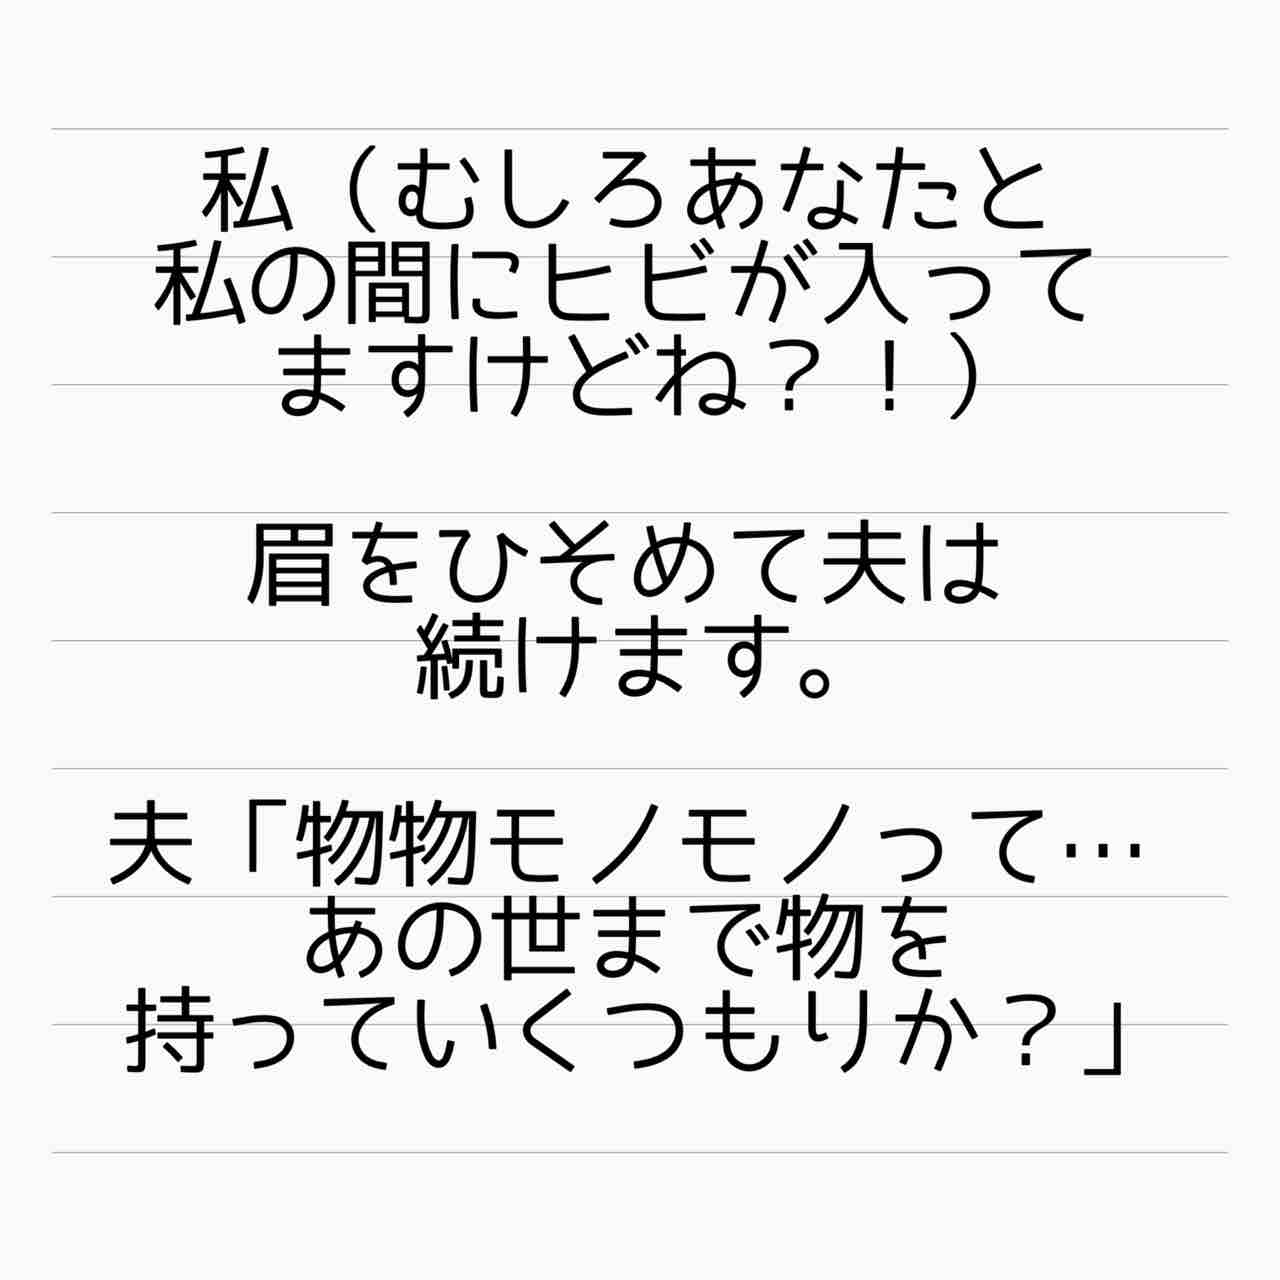 私（むしろあなたと
私の間にヒビが入って
ますけどね？！）
眉をひそめて夫は
続けます。
夫「物物モノモノって…
あの世まで物を
持っていくつもりか？」